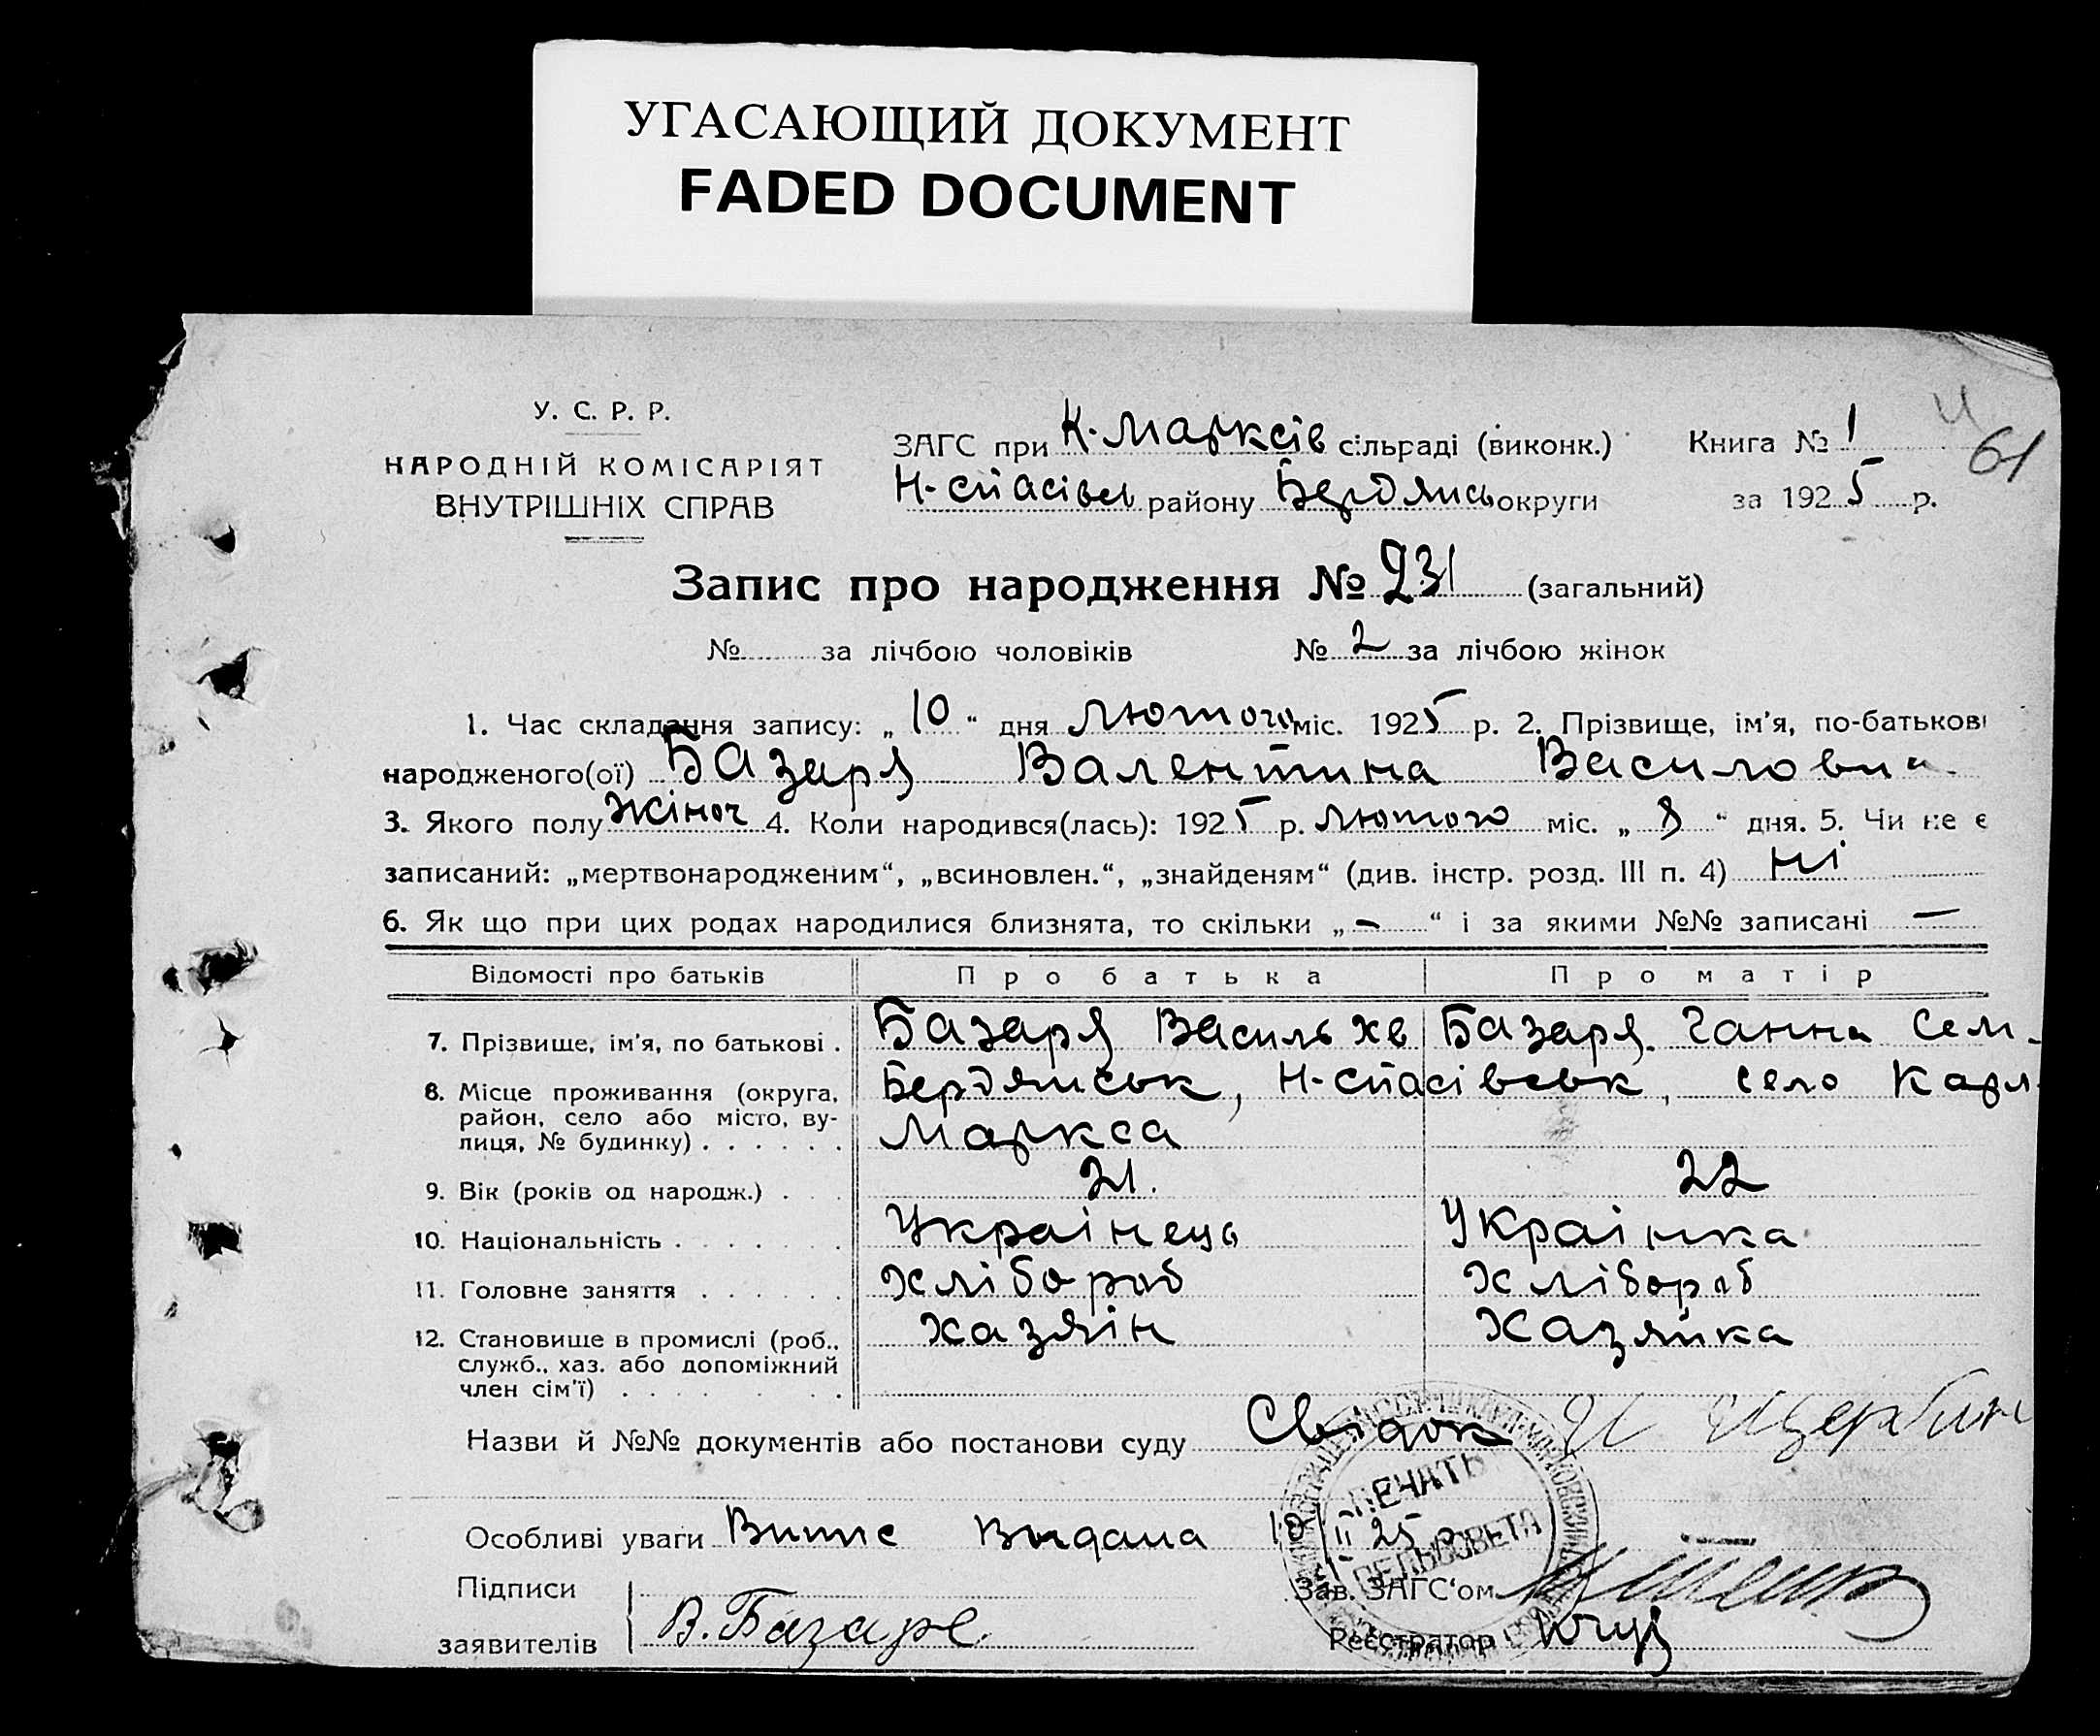 УГАСАЮЩИЙ ДОКУМЕНТ
FADED DOCUMENT
У. С. Р. Р.
НАРОДНІЙ КОМІСАРІЯТ
ВНУТРІШНІХ СПРАВ
ЗАГС при К. Марксів сільраді (виконк.)
Н-Спасівсь районy Бердянсь округи
Книга № 1
за 1925 р.
61
Запис про народження № 231 (загальний)
№ за лічбою чоловіків № 2 за лічбою жінок
1. Час складання запису: „10“ дня Лютого міс. 1925 р. 2. Прізвище, ім'я, по-батькові
народженого(ої) Базаря Валентина Василовна
3. Якого полу Жіноч 4. Коли народився(лась): 1925 р. Лютого міс. „8“ дня. 5. Чи не є
записаний: „мертвонародженим“, „всиновлен.“, „знайденям“ (див. інстр. розд. III п. 4) Ні
6. Як що при цих родах народилися близнята, то скільки „—“ і за якими №№ записані —
Відомості про батьків Про батька Про матір
7. Прізвище, ім'я, по батькові . Базаря Василь Хв Базаря Ганна Сем.
8. Місце проживання (округа, Бердянськ, Н-Спасівськ, село Карл
район, село або місто, ву-
лиця, № будинку) Маркса
9. Вік (років од народж.) 21. 22
10. Національність Украінець Украінка
11. Головне заняття Хлібороб Хлібороб
12. Становище в промислі (роб., Хазяін Хазяйка
служб., хаз. або допоміжний
член сім'ї)
Назви й №№ документів або постанови суду Свідок И Щербин
Особливі уваги Витис Видана 10/II 25 р.
ПЕЧАТЬ
СЕЛЬСОВЕТА
Підписи
заявителів В. Базаре
Зав. ЗАГС'ом
Реєстратор